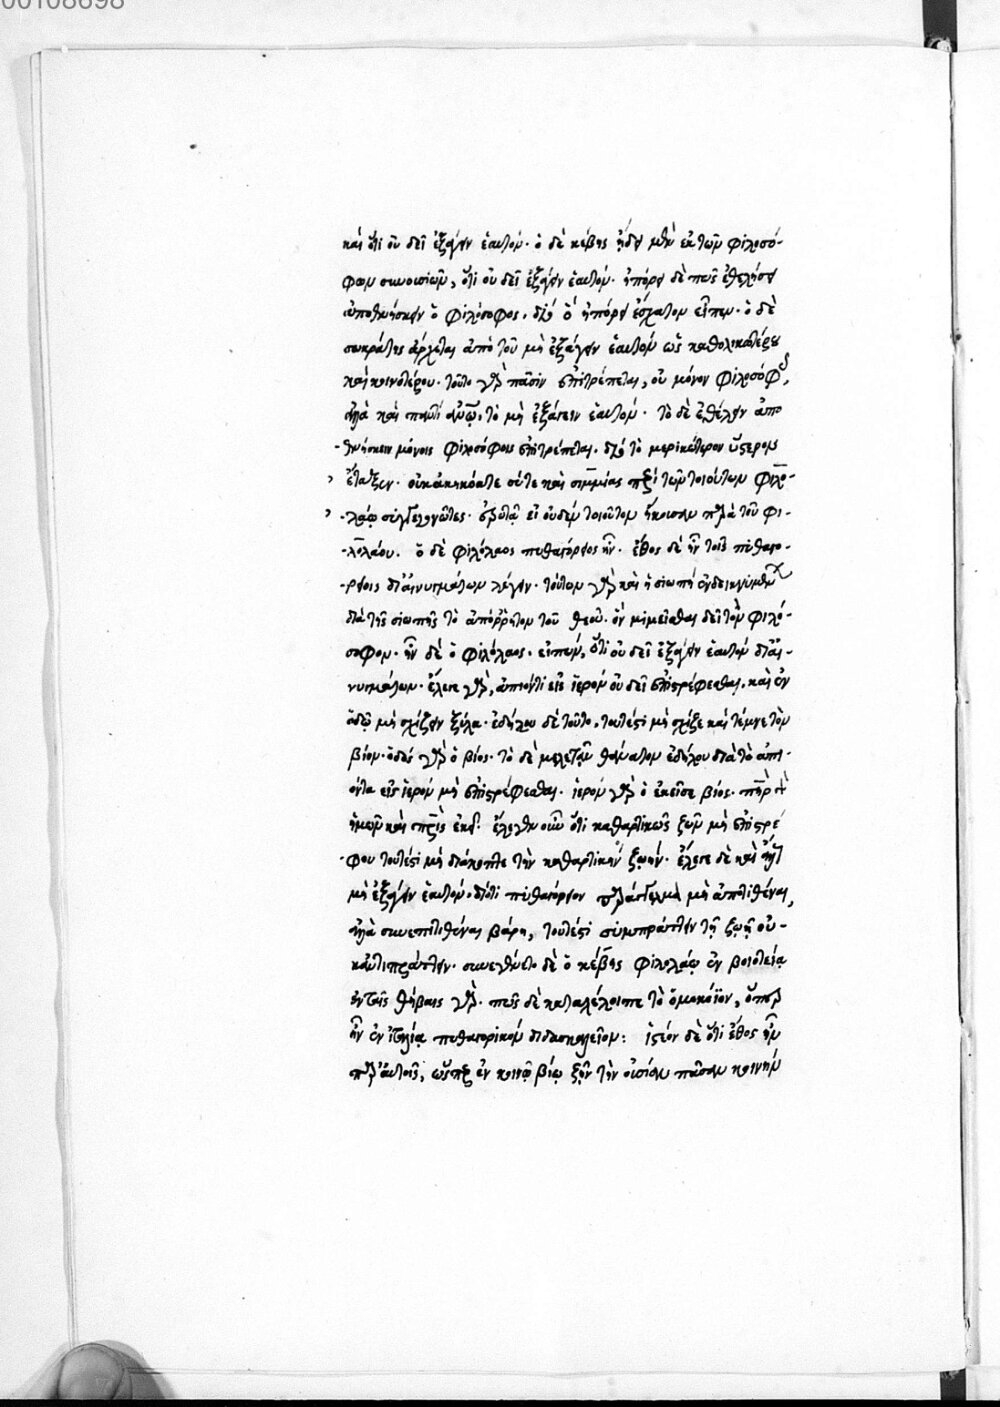 00108698
καὶ ὅτι οὐ δεῖ ἐξάγειν ἑαυτόν· ὁ δὲ κέβης ᾔδει μὲν ἐκ τῶν φιλοσό-
φων συνουσιῶν, ὅτι οὐ δεῖ ἐξάγειν ἑαυτόν· ἠπόρει δὲ πῶς ἐθελήσει
ἀποθνήσκειν ὁ φιλόσοφος· διὸ ὃ ἠπόρει ἔσχατον εἶπεν· ὁ δὲ
σωκράτης ἄρχεται ἀπὸ τοῦ μὴ ἐξάγειν ἑαυτὸν ὡς καθολικωτέρου
καὶ κοινοτέρου· τοῦτο γὰρ πᾶσιν ἐπιτρέπεται, οὐ μόνον φιλοσόφοις,
ἀλλὰ καὶ παντὶ ἀνθρώπῳ, τὸ μὴ ἐξάγειν ἑαυτόν· τὸ δὲ ἐθέλειν ἀπο-
-θνήσκειν μόνοις φιλοσόφοις ἐπιτρέπεται· διὸ τὸ μερικώτερον ὕστερον
ἔταξεν· οὐκ ἀκηκόατε σύ τε καὶ σιμμίας περὶ τῶν τοιούτων φιλο-
-λάῳ συγγεγονότες· ἐρωτᾷ εἰ οὐδὲν τοιοῦτον ἤκουσαν παρὰ τοῦ φι-
-λολάου. ὁ δὲ φιλόλαος πυθαγόρειος ἦν· ἔθος δὲ ἦν τοῖς πυθαγο-
-ρείοις δι' αἰνιγμάτων λέγειν· τούτων γὰρ καὶ ἡ σιωπὴ ἐνδεικνυμένων
διὰ τῆς σιωπῆς τὸ ἀπόρρητον τοῦ θεοῦ· ὃν μιμεῖσθαι δεῖ τὸν φιλό-
σοφον· ἦν δὲ ὁ φιλόλαος εἰπών, ὅτι οὐ δεῖ ἐξάγειν ἑαυτὸν δι' αἰ-
νιγμάτων· ἔλεγε γὰρ, ἀπιόντι εἰς ἱερὸν οὐ δεῖ ἐπιστρέφεσθαι, καὶ ἐν
ὁδῷ μὴ σχίζειν ξύλα· ἐδήλου δὲ τοῦτο, τουτέστι μὴ σχίζε καὶ τέμνε τὸν
βίον· ὁδὸς γὰρ ὁ βίος· τὸ δὲ μελετᾶν θάνατον ἐδήλου διὰ τὸ ἀπι-
όντα εἰς ἱερὸν μὴ ἐπιστρέφεσθαι· ἱερὸν γὰρ ὁ ἐκεῖσε βίος· πατὴρ γὰρ
ἡμῶν καὶ πατρὶς ἐκεῖ· ἔλεγεν οὖν ὅτι καθαρτικῶς ζῶν μὴ ἐπιστρέ-
-φου τουτέστι μὴ διάκοπτε τὴν καθαρτικὴν ζωήν· ἔλεγε δὲ καὶ
μὴ ἐξάγειν ἑαυτόν, διότι πυθαγόρειον παράγγελμα μὴ ἀποτιθέναι,
ἀλλὰ συνεπιτιθέναι βάρη, τουτέστι συμπράττειν τῇ ζωῇ οὐ-
κ ἀντιπράττειν· συνεγένετο δὲ ὁ κέβης φιλολάῳ ἐν βοιοτείᾳ
ἐν ταῖς θήβαις γὰρ· πεῖς δὲ καταλέλοιπε τὸ ὁμακόϊον, ὅπερ
ἦν ἐν ἰταλίᾳ πυθαγορικὸν διδασκαλεῖον: ἰστέον δὲ ὅτι ἔθος ἦν
παρ' αὐτοῖς, ὥσπερ ἐν κοινῷ βίῳ ζῆν τὴν οὐσίαν πᾶσαν κοινὴν